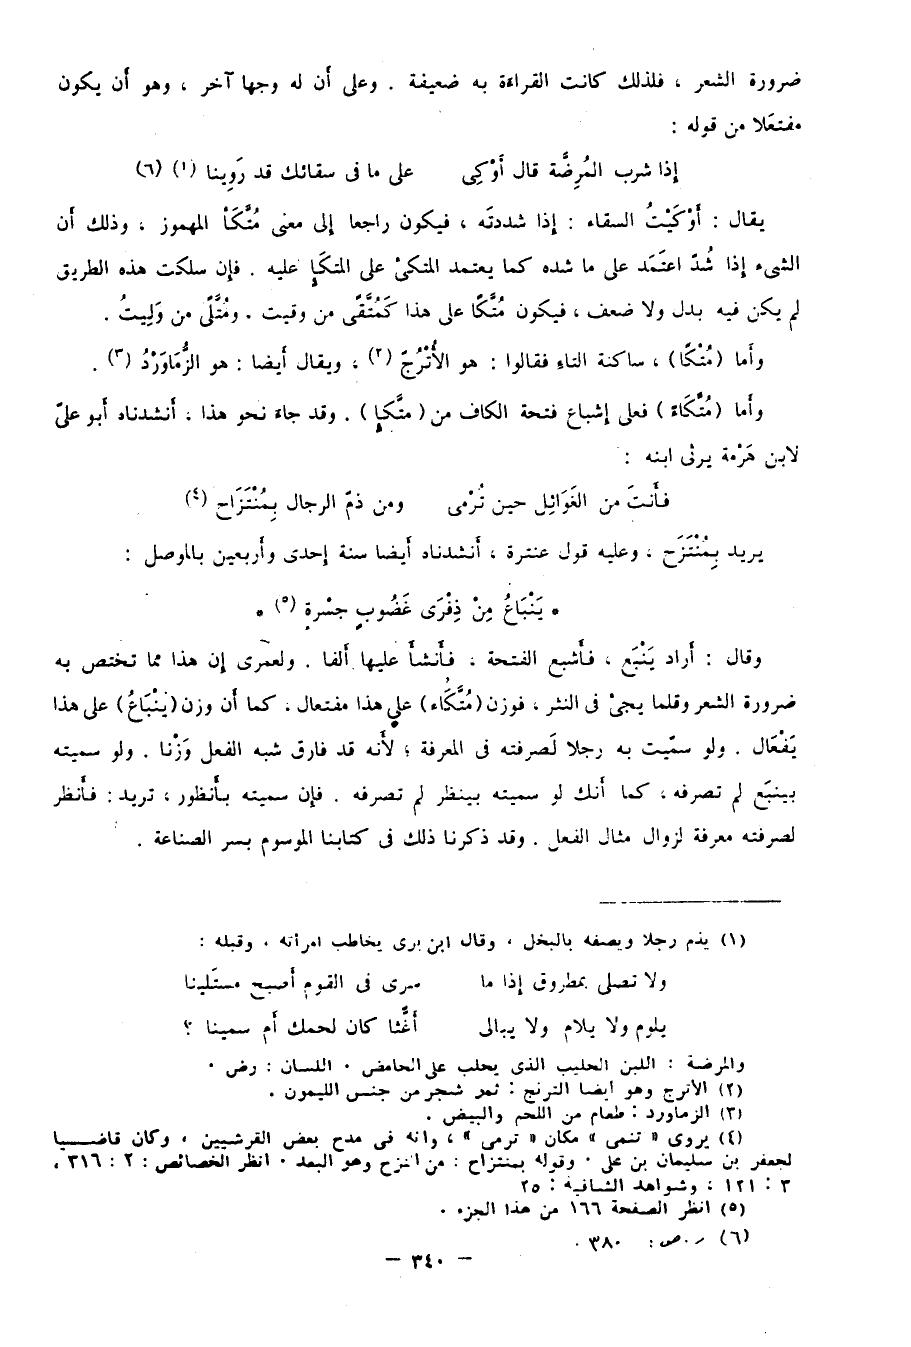 ضرورة الشعر ، فلذلك كانت القراءة به ضعيفة . وعلى أن له وجها آخر ، وهو أن يكون
مفتعَلا من قوله :
إذا شرب المُرِضَّة قال أَوْكِى على ما فى سقائك قد رَوِينا (١) (٦)
يقال : أَوْكَيْتُ السقاء : إذا شددتَه ، فيكون راجعا إلى معنى مُتَّكَأْ المهموز ، وذلك أن
الشىء إذا شُدّ اعتَمَد على ما شده كما يعتمد المتكئ على المتكَإِ عليه . فإن سلكت هذه الطريق
لم يكن فيه بدل ولا ضعف ، فيكون مُتَّكًا على هذا كَمُتَّقًى من وقيت . ومُتَّلًى من وَلِيتُ .
وأما (مُتْكًا) ، ساكنة التاء فقالوا : هو الأُتْرُجّ (٢) ، ويقال أيضا : هو الزُّمَاوَرْدُ (٣) .
وأما (مُتَّكَاءً) فعلى إشباع فتحة الكاف من (متَّكإٍ) . وقد جاء نحو هذا ، أنشدناه أبو علىّ
لابن هَرْمة يرثى ابنه :
فأَنتَ من الغَوَائِل حين تُرْمى ومن ذمّ الرجال بِمُنْتَزَاح (٤)
يريد بِمُنْتَزَح ، وعليه قول عنترة ، أنشدناه أيضا سنة إحدى وأربعين بالموصل :
* يَنْبَاعُ مِنْ ذِفْرَى غَضُوبٍ جسْرةٍ (٥) *
وقال : أراد يَنْبَع ، فأشبع الفتحة ، فأنشأ عليها ألفا . ولعمرى إن هذا مما تختص به
ضرورة الشعر وقلما يجئ فى النثر ، فوزن (مُتَّكَاءٍ) على هذا مفتعال ، كما أن وزن (يَنْبَاعُ) على هذا
يَفْعَال . ولو سمّيت به رجلا لَصرفته فى المعرفة ؛ لأَنه قد فارق شبه الفعل وَزْنا . ولو سميته
بينبَع لم تصرفه ، كما أنك لو سميته بينظر لم تصرفه . فإن سميته بأَنظور ، تريد : فأَنظر
لصرفته معرفة لزوال مثال الفعل . وقد ذكرنا ذلك فى كتابنا الموسوم بسر الصناعة .
(١) يذم رجلا ويصفه بالبخل ، وقال ابن برى يخاطب امرأته ، وقبله :
ولا تصلى بمطروق إذا ما سرى فى القوم أصبح مستَلينا
يلوم ولا يلام ولا يبالى أَغَثًّا كان لحمك أم سمينا ؟
والمرضة : اللبن الحليب الذى يحلب على الحامض . اللسان : رض .
(٢) الأترج وهو أيضا الترنج : ثمر شجر من جنس الليمون .
(٣) الزماورد : طعام من اللحم والبيض .
(٤) يروى « تنمى » مكان « ترمى » ، وانه فى مدح بعض القرشيين ، وكان قاضيا
لجعفر بن سليمان بن على . وقوله بمنتزاح : من انتزح وهو البعد . انظر الخصائص : ٢ : ٣١٦ ،
٣ : ١٢١ ، وشواهد الشافية : ٢٥
(٥) انظر الصفحة ١٦٦ من هذا الجزء .
(٦) ص: ٣٨٠ .
– ٣٤٠ –